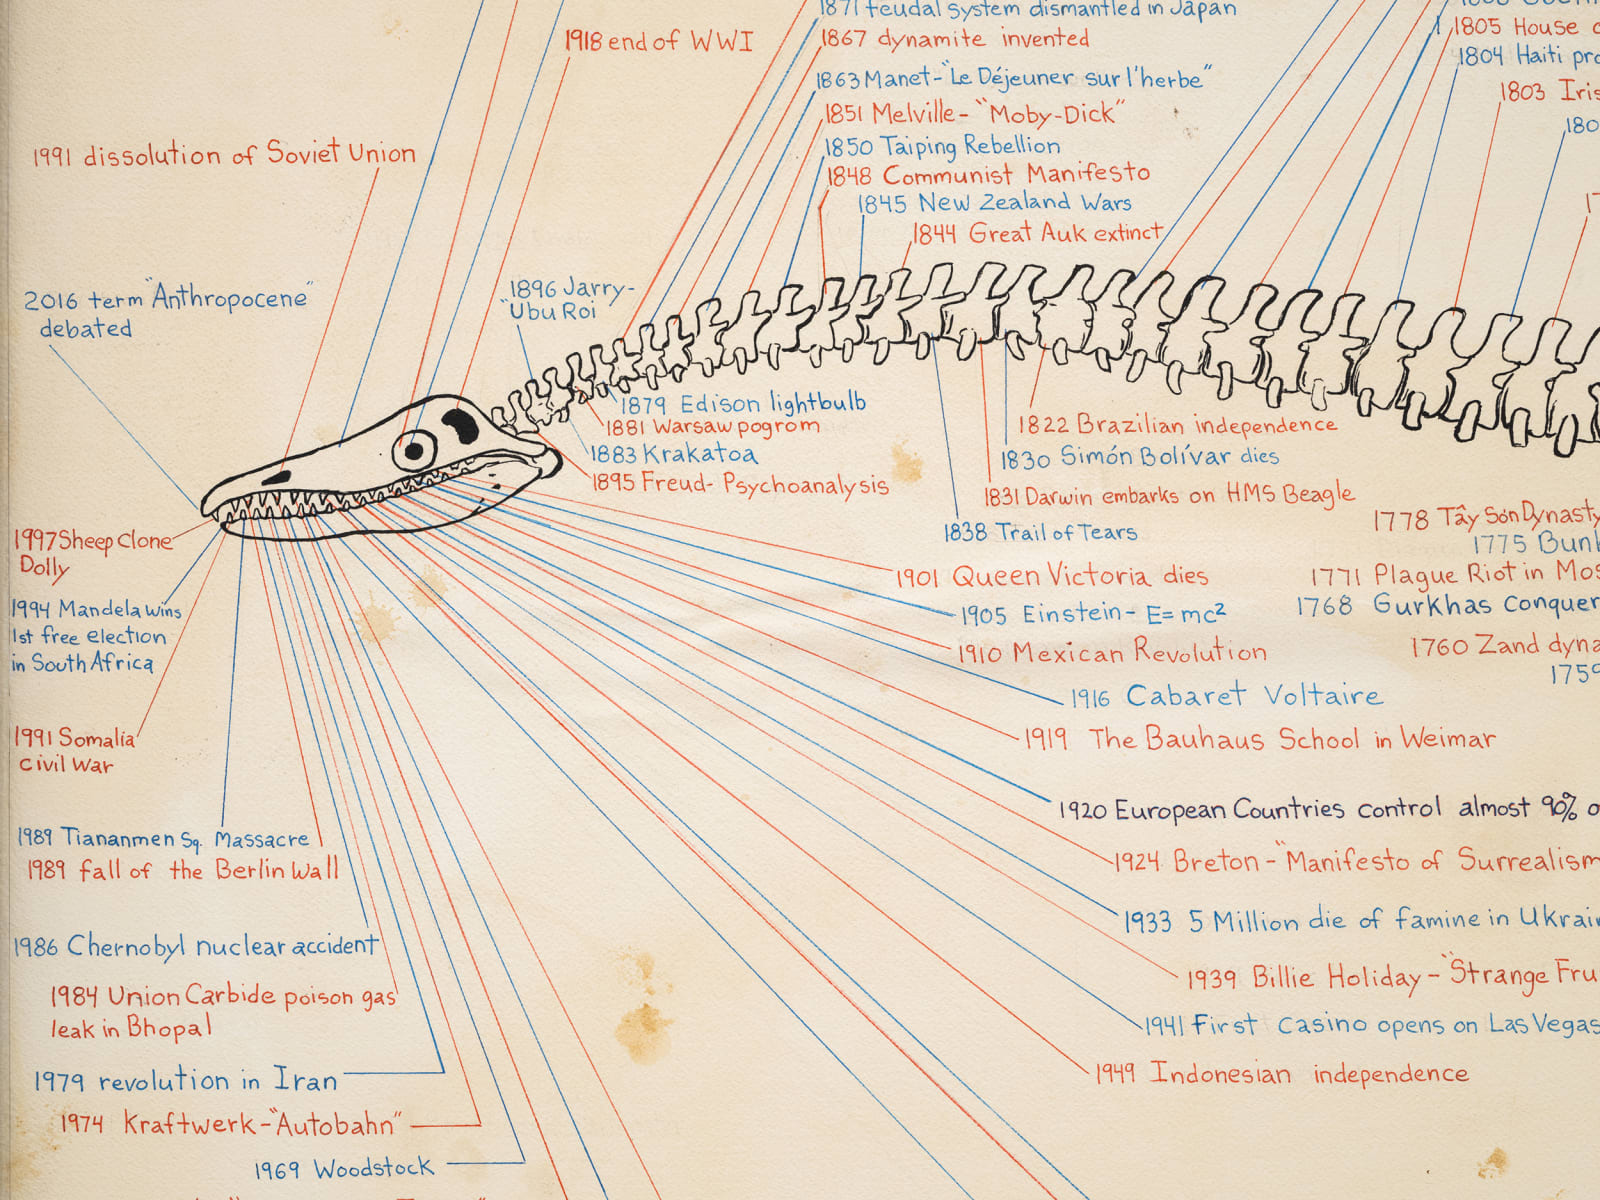 1871 feudal system dismantled in Japan
1918 end of WWI
1867 dynamite invented
1863 Manet-"Le Déjeuner sur l'herbe"
1851 Melville-"Moby-Dick"
1850 Taiping Rebellion
1848 Communist Manifesto
1845 New Zealand Wars
1844 Great Auk extinct
1805 House
1804 Haiti
1803
1991 dissolution of Soviet Union
2016 term "Anthropocene"
debated
1896 Jarry-
"Ubu Roi
1879 Edison lightbulb
1881 Warsaw pogrom
1883 Krakatoa
1895 Freud- Psychoanalysis
1822 Brazilian independence
1830 Simón Bolívar dies
1831 Darwin embarks on HMS Beagle
1838 Trail of Tears
1778 Tây Sơn Dynasty
1775
1771 Plague Riot in
1768 Gurkhas Conquer
1760 Zand
1759
1997 Sheep Clone
Dolly
1994 Mandela wins
1st free election
in South Africa
1991 Somalia
Civil War
1989 Tiananmen Sq. Massacre
1989 fall of the Berlin Wall
1986 Chernobyl nuclear accident
1984 Union Carbide poison gas
leak in Bhopal
1979 revolution in Iran
1974 Kraftwerk-"Autobahn"
1969 Woodstock
1901 Queen Victoria dies
1905 Einstein- E=mc²
1910 Mexican Revolution
1916 Cabaret Voltaire
1919 The Bauhaus School in Weimar
1920 European Countries control almost 90%
1924 Breton-"Manifesto of Surrealism
1933 5 Million die of famine in
1939 Billie Holiday-"Strange
1941 First Casino opens on Las Vegas
1949 Indonesian independence